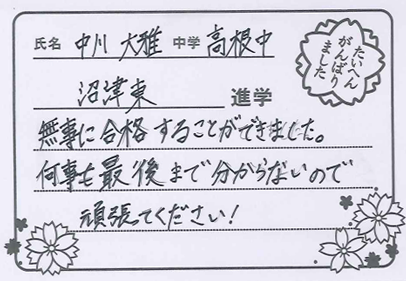 氏名 中川 大雅 中学 高根中
たいへん
がんばり
ました
沼津東 進学
無事に合格することができました。
何事も最後まで分からないので
頑張ってください!